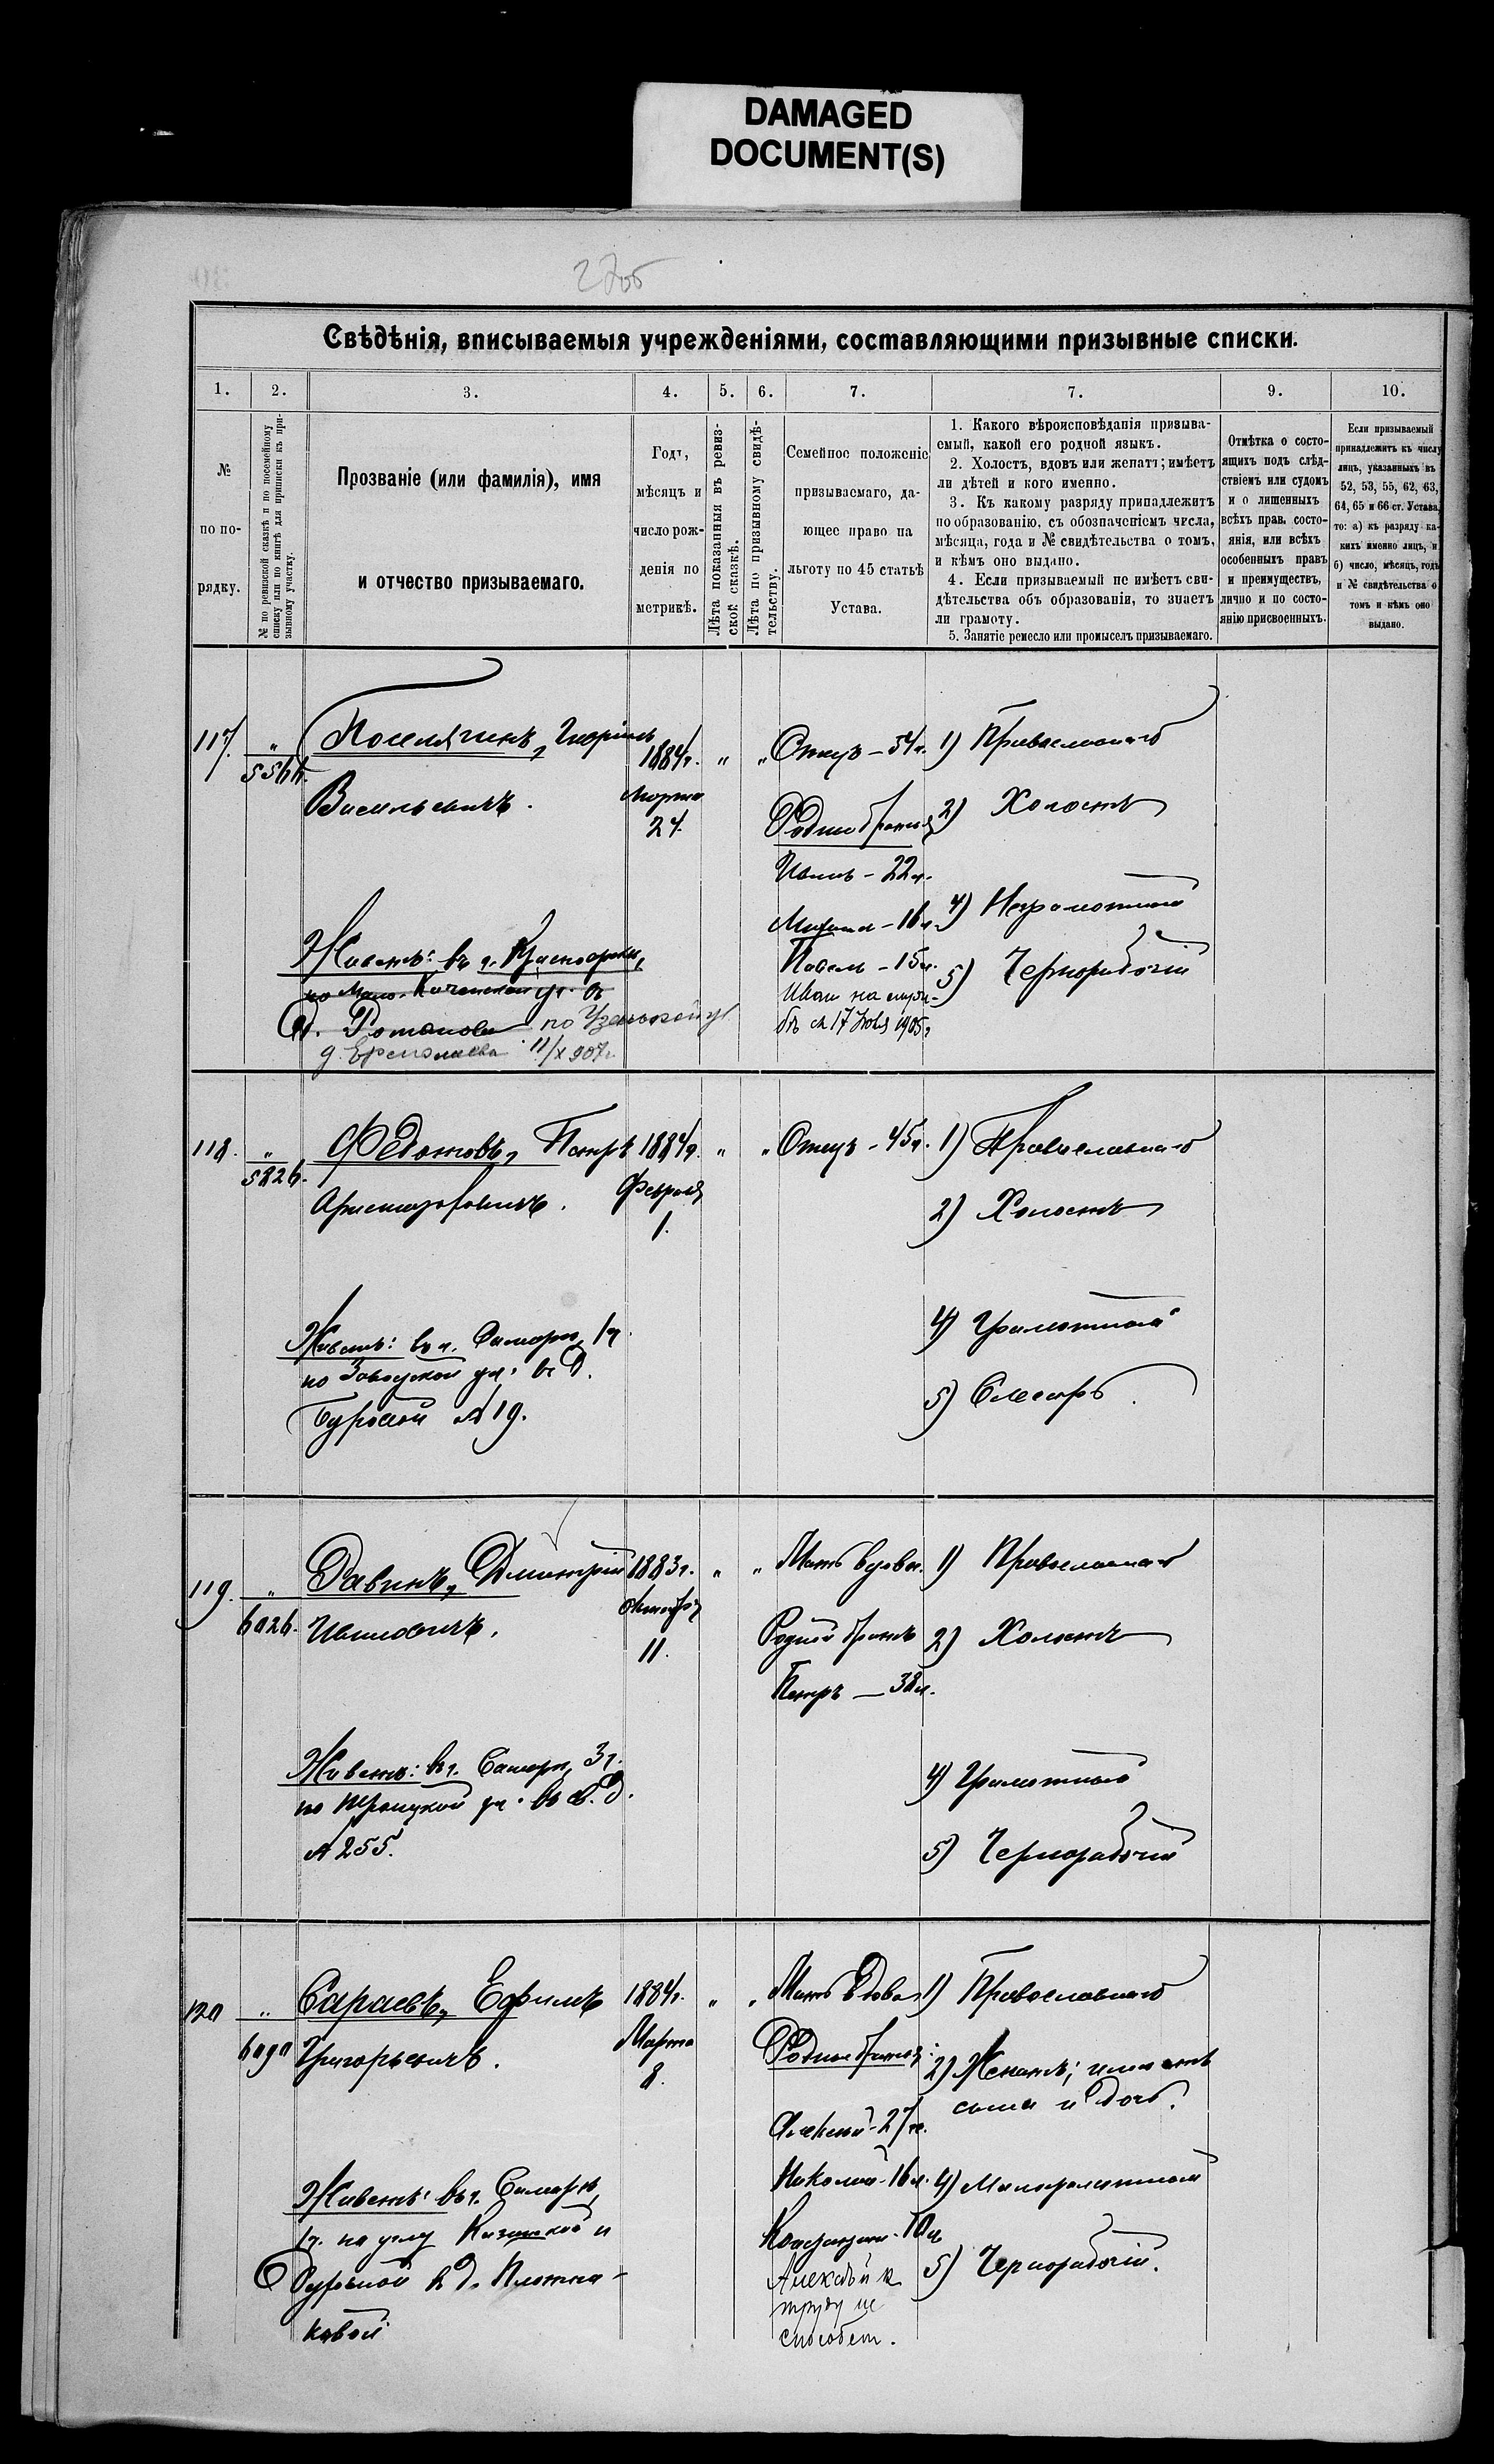 DAMAGED
DOCUMENT(S)
27об
Свѣдѣнія, вписываемыя учрежденіями, составляющими призывные списки.
1. 2. 3. 4. 5. 6. 7. 7. 9. 10.
№
по по-
рядку.
№ по ревизской сказкѣ и по посемейному
списку или по книгѣ для приписки къ при-
зывному участку.
Прозваніе (или фамилія), имя
и отчество призываемаго.
Годъ,
мѣсяцъ и
число рож-
денія по
метрикѣ.
Лѣта показанныя въ ревиз-
ской сказкѣ.
Лѣта по призывному свидѣ-
тельству.
Семейное положеніе
призываемаго, да-
ющее право на
льготу по 45 статьѣ
Устава.
1. Какого вѣроисповѣданія призыва-
емый, какой его родной языкъ.
2. Холостъ, вдовъ или женатъ; имѣетъ
ли дѣтей и кого именно.
3. Къ какому разряду принадлежитъ
по образованію, съ обозначеніемъ числа,
мѣсяца, года и № свидѣтельства о томъ,
и кѣмъ оно выдано.
4. Если призываемый не имѣетъ сви-
дѣтельства объ образованіи, то знаетъ
ли грамоту.
5. Занятіе ремесло или промыселъ призываемаго.
Отмѣтка о состо-
ящихъ подъ слѣд-
ствіемъ или судомъ
и о лишенныхъ
всѣхъ прав. состо-
янія, или всѣхъ
особенныхъ правъ
и преимуществъ,
лично и по состо-
янію присвоенныхъ.
Если призываемый
принадлежитъ къ числу
лицъ, указанныхъ въ
52, 53, 55, 62, 63,
64, 65 и 66 ст. Устава,
то: а) къ разряду ка-
кихъ именно лицъ, и
б) число, мѣсяцъ, годъ
и № свидѣтельства о
томъ и кѣмъ оно
выдано.
117. "
Поселягинъ,
Васильевичъ.
1884г.
Марта
24.
" "
Отецъ – 54г.
Родные братья
Иванъ – 22л.
Михаилъ – 16л.
Павелъ – 15л.
Иванъ на служ-
бѣ съ 17 1905г
1) Православнаго
2) Холостъ
4) Неграмотный
5) Чернорабочій
Живетъ: въ г. Красноярскѣ,
ул. въ
д. Романова по Узенькой ул
д. Ермолаева 11/X 907г.
118. "
5826.
Федотовъ, Петръ
1884г.
Февраля
1.
" "
Отецъ – 45л.
1) Православнаго
2) Холостъ
4) Грамотный
5) Слесарь.
Живетъ: въ г. Самарѣ, 1ч.
по Заводской ул. въ д.
№ 19.
119. "
6026.
Савинъ, Дмитрій
Ивановичъ.
1883г.
Октября
11.
" "
Мать вдова.
Родной братъ
Петръ – 38л.
1) Православнаго
2) Холостъ
4) Грамотный
5) Чернорабочій
Живетъ: въ г. Самарѣ, 3ч.
по Троицкой ул. въ св. д.
№ 255.
120 "
6090
Сараевъ, Ефимъ
Григорьевичъ.
1884г.
Марта
8.
" "
Мать вдова
Родные братья:
Алексѣй – 27л.
Николай – 16л.
10л
Алексѣй къ
труду не
способен.
1) Православнаго
2) Женатъ; имѣетъ
сына и дочь.
4) Малограмотный
5) Чернорабочій.
Живетъ: въ г. Самарѣ,
1ч. на углу Казанской и
въ д. Плотни-
ковой